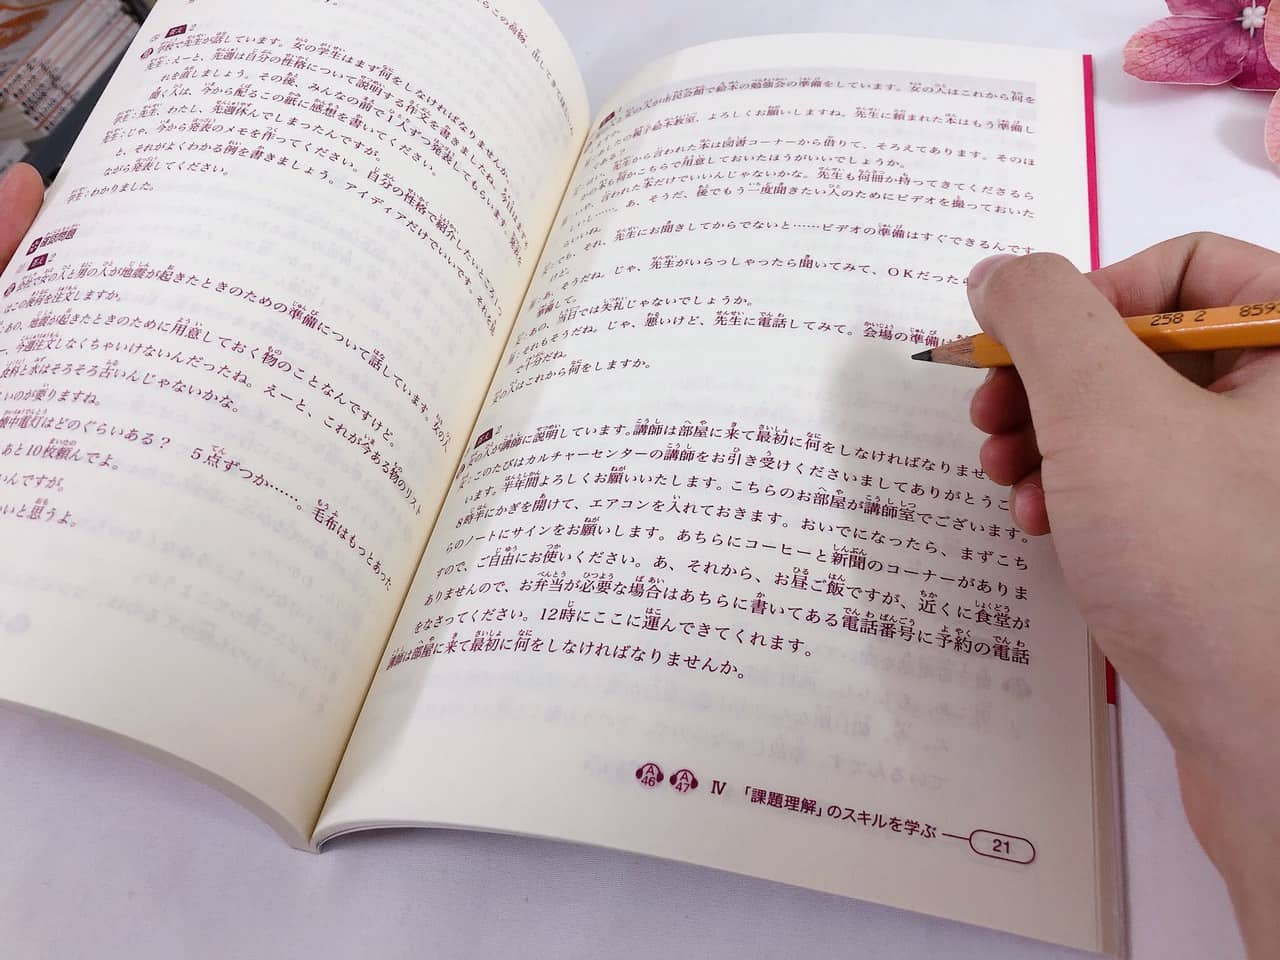 答え 2
学校で先生が話しています。女の学生はまず何をしなければなりませんか。
先生：えーと、先週は自分の性格について説明する作文を書きましたね。今日は
れを直しましょう。その後、みんなの前で1人ずつ発表してもらいます。発表を
聞く人は、今から配るこの紙に感想を書いてください。
学生：先生、わたし、先週休んでしまったんですが。
先生：じゃ、今から発表のメモを作ってください。自分の性格で紹介したいところ
と、それがよくわかる例を書きましょう。アイディアだけでいいです。それを見
ながら発表してください。
学生：わかりました。
確認問題
答え 2
会社で女の人と男の人が地震が起きたときのための準備について話しています。女の人
はこの後何を注文しますか。
あの、地震が起きたときのために用意しておく物のことなんですけど。
今週注文しなくちゃいけないんだったね。えーと、これが今ある物のリスト
食料と水はそろそろ古いんじゃないかな。
のが要りますね。
懐中電灯はどのぐらいある？ 5点ずつか……。毛布はもっとあった
あと10枚頼んでよ。
んですが。
いと思うよ。
女の人が市民会館で絵本の勉強会の準備をしています。女の人はこれから何を
ますか。
親子絵本教室、よろしくお願いしますね。先生に頼まれた本はもう準備し
てある？
先生から言われた本は図書コーナーから借りて、そろえてあります。そのほ
かの本も何かこちらで用意しておいたほうがいいでしょうか。
いや、言われた本だけでいいんじゃないかな。先生も何冊か持ってきてくださるら
……。あ、そうだ、後でもう一度聞きたい人のためにビデオを撮っておいた
らいいね。
でも、それ、先生にお聞きしてからでないと……ビデオの準備はすぐできるんです
けど。
そうだね。じゃ、先生がいらっしゃったら聞いてみて、OKだった
準備して。
あの、当日では失礼じゃないでしょうか。
それもそうだね。じゃ、悪いけど、先生に電話してみて。会場の準備は
で十分だね。
女の人はこれから何をしますか。
答え 2
女の人が講師に説明しています。講師は部屋に来て最初に何をしなければなりませ
このたびはカルチャーセンターの講師をお引き受けくださいましてありがとうご
います。半年間よろしくお願いいたします。こちらのお部屋が講師室でございます。
8時半にかぎを開けて、エアコンを入れておきます。おいでになったら、まずこち
らのノートにサインをお願いします。あちらにコーヒーと新聞のコーナーがありま
すので、ご自由にお使いください。あ、それから、お昼ご飯ですが、近くに食堂が
ありませんので、お弁当が必要な場合はあちらに書いてある電話番号に予約の電話
をなさってください。12時にここに運んできてくれます。
講師は部屋に来て最初に何をしなければなりませんか。
A46 A47 Ⅳ 「課題理解」のスキルを学ぶ 21
258 2 859